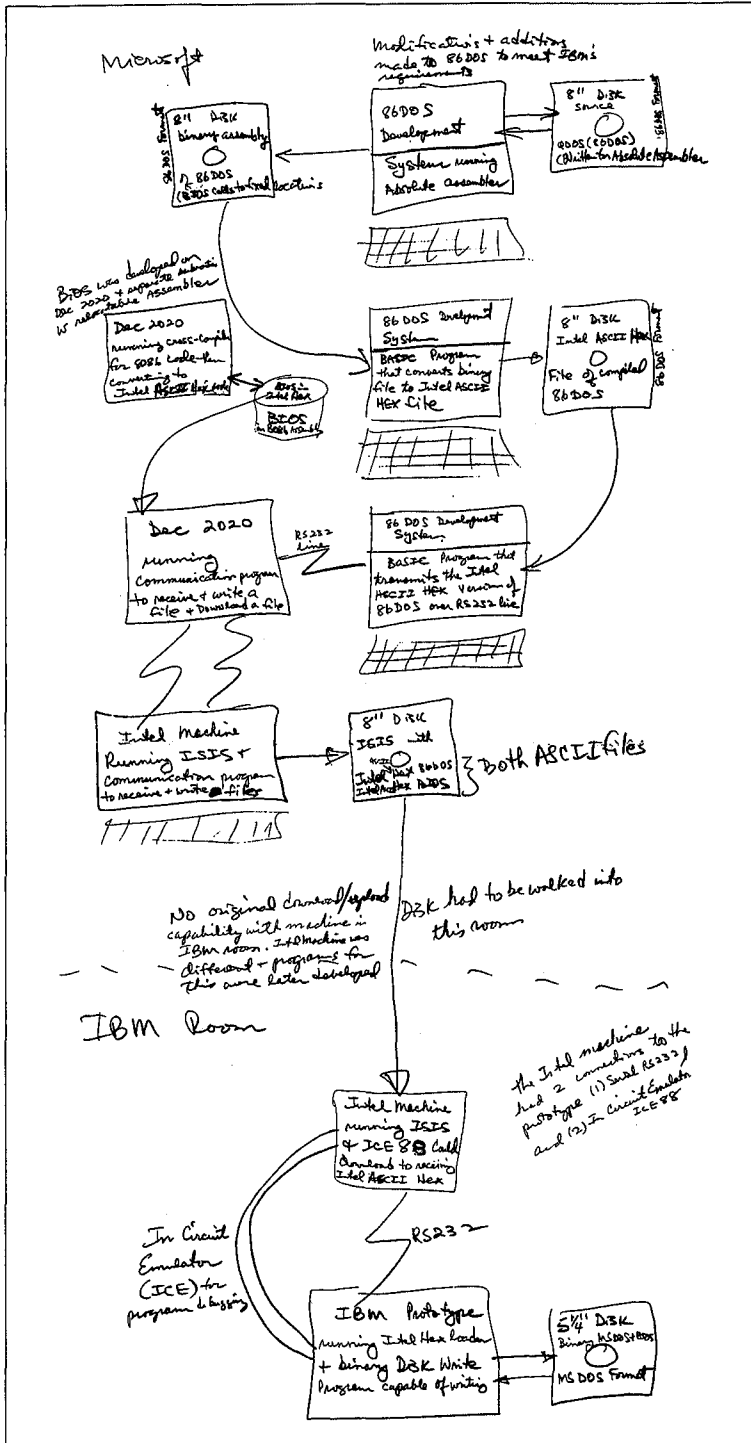 Microsoft
Modifications + additions
made to 86DOS to meet IBM's
requirements
86DOS Format
8" Disk
binary assembly
of 86DOS
(BIOS calls to fixed locations
86DOS
Development
System running
Absolute assembler
8" Disk
source
QDOS (86DOS)
(Written for Absolute Assembler
86DOS Format
BIOS was developed on
Dec 2020 + separate
w relocatable Assembler
Dec 2020
running cross-compiler
for 8086 code then
converting to
Intel ASCII Hex code
BIOS in
Intel Hex
BIOS
in 8086 Assembler
86DOS Development
System
BASIC Program
that converts binary
file to Intel ASCII
HEX file
8" Disk
Intel ASCII Hex
File of compiled
86DOS
86DOS Format
Dec 2020
running
Communication program
to receive + write a
file + Download a file
RS232
line
86 DOS Development
System
BASIC Program that
transmits the Intel
ASCII HEX Version of
86DOS over RS232 line
Intel Machine
Running ISIS +
communication program
to receive + write files
8" Disk
ISIS with
ASCII
Intel Hex 86DOS
Intel Hex BIOS
Both ASCII files
No original download/upload
capability with machine in
IBM room. Intel Machine was
different + programs for
this were later developed
Disk had to be walked into
this room
IBM Room
the Intel machine
had 2 connections to the
prototype (1) Serial RS232
and (2) In Circuit Emulator
ICE 88
Intel Machine
running ISIS
+ ICE 88 Could
download to receiving
Intel ASCII Hex
RS232
In Circuit
Emulator
(ICE) for
program debugging
IBM Prototype
running Intel Hex loader
+ binary Disk Write
Program capable of writing
5 1/4" Disk
Binary MSDOS+BIOS
MS DOS Format